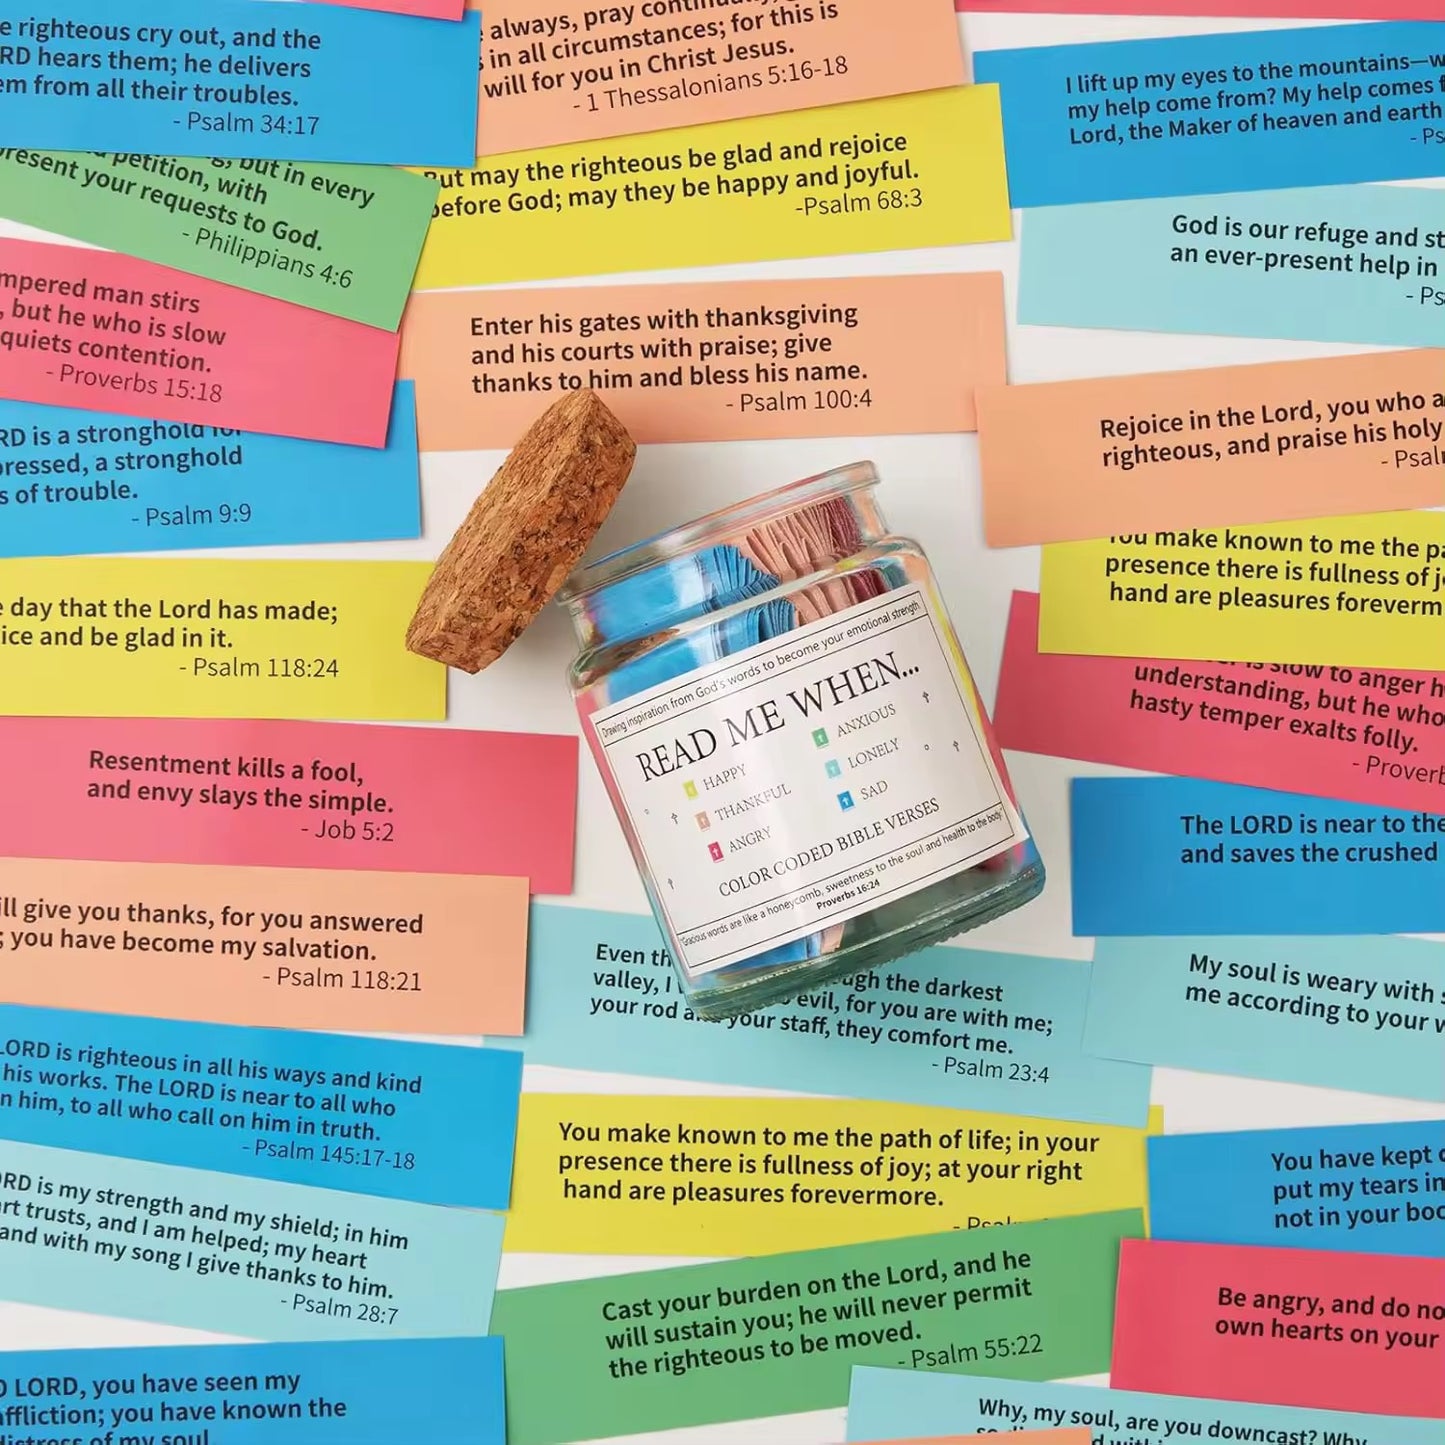 e righteous cry out, and the
RD hears them; he delivers
em from all their troubles.
- Psalm 34:17
always, pray
in all circumstances; for this is
will for you in Christ Jesus.
- 1 Thessalonians 5:16-18
I lift up my eyes to the mountains—w
my help come from? My help comes f
Lord, the Maker of heaven and earth
- Ps
but in every
petition, with
resent your requests to God.
- Philippians 4:6
But may the righteous be glad and rejoice
before God; may they be happy and joyful.
-Psalm 68:3
God is our refuge and st
an ever-present help in
- Ps
mpered man stirs
, but he who is slow
quiets contention.
- Proverbs 15:18
Enter his gates with thanksgiving
and his courts with praise; give
thanks to him and bless his name.
- Psalm 100:4
Rejoice in the Lord, you who a
righteous, and praise his holy
- Psal
RD is a stronghold for
pressed, a stronghold
s of trouble.
- Psalm 9:9
You make known to me the pa
presence there is fullness of j
hand are pleasures foreverm
e day that the Lord has made;
ice and be glad in it.
- Psalm 118:24
is slow to anger h
understanding, but he who
hasty temper exalts folly.
- Proverb
Drawing inspiration from God's words to become your emotional strength
READ ME WHEN...
HAPPY
THANKFUL
ANGRY
ANXIOUS
LONELY
SAD
COLOR CODED BIBLE VERSES
"Gracious words are like a honeycomb, sweetness to the soul and health to the body."
Proverbs 16:24
Resentment kills a fool,
and envy slays the simple.
- Job 5:2
The LORD is near to the
and saves the crushed
ill give you thanks, for you answered
; you have become my salvation.
- Psalm 118:21
Even th
ugh the darkest
valley, I
evil, for you are with me;
your rod a
your staff, they comfort me.
- Psalm 23:4
My soul is weary with s
me according to your w
LORD is righteous in all his ways and kind
his works. The LORD is near to all who
n him, to all who call on him in truth.
- Psalm 145:17-18
You make known to me the path of life; in your
presence there is fullness of joy; at your right
hand are pleasures forevermore.
You have kept c
put my tears in
not in your boo
RD is my strength and my shield; in him
rt trusts, and I am helped; my heart
and with my song I give thanks to him.
- Psalm 28:7
Cast your burden on the Lord, and he
will sustain you; he will never permit
the righteous to be moved.
- Psalm 55:22
Be angry, and do no
own hearts on your
O LORD, you have seen my
affliction; you have known the
distress of my soul
Why, my soul, are you downcast? Why